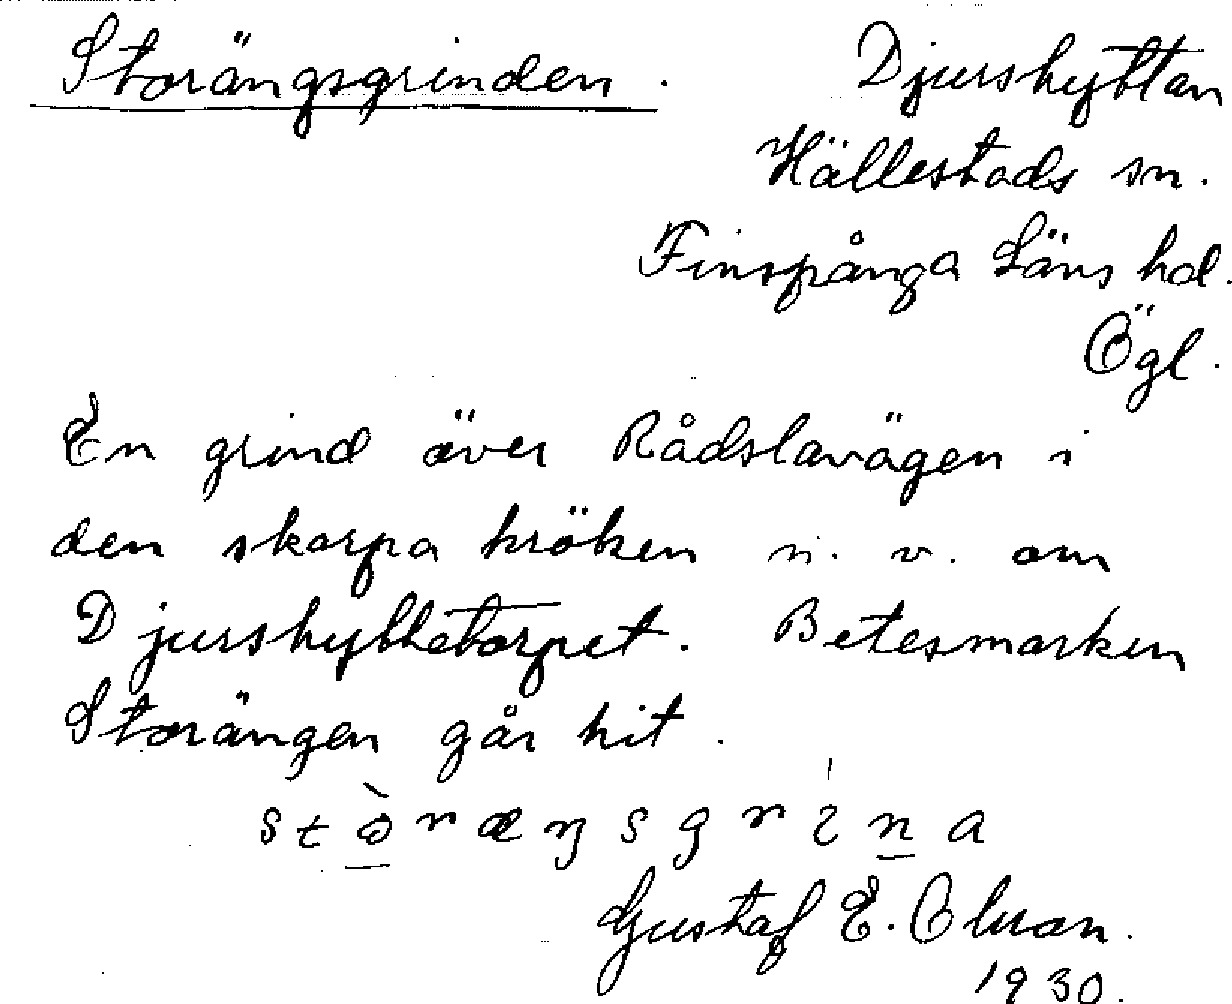 Storängsgrinden.
Djurshyttan
Hällestads sn.
Finspånga Läns hd.
Ögl.
En grind över Rådslavägen i
den skarpa kröken n. v. om
Djurshyttetorpet. Betesmarken
Storängen går hit.
Gustaf E.
1930.